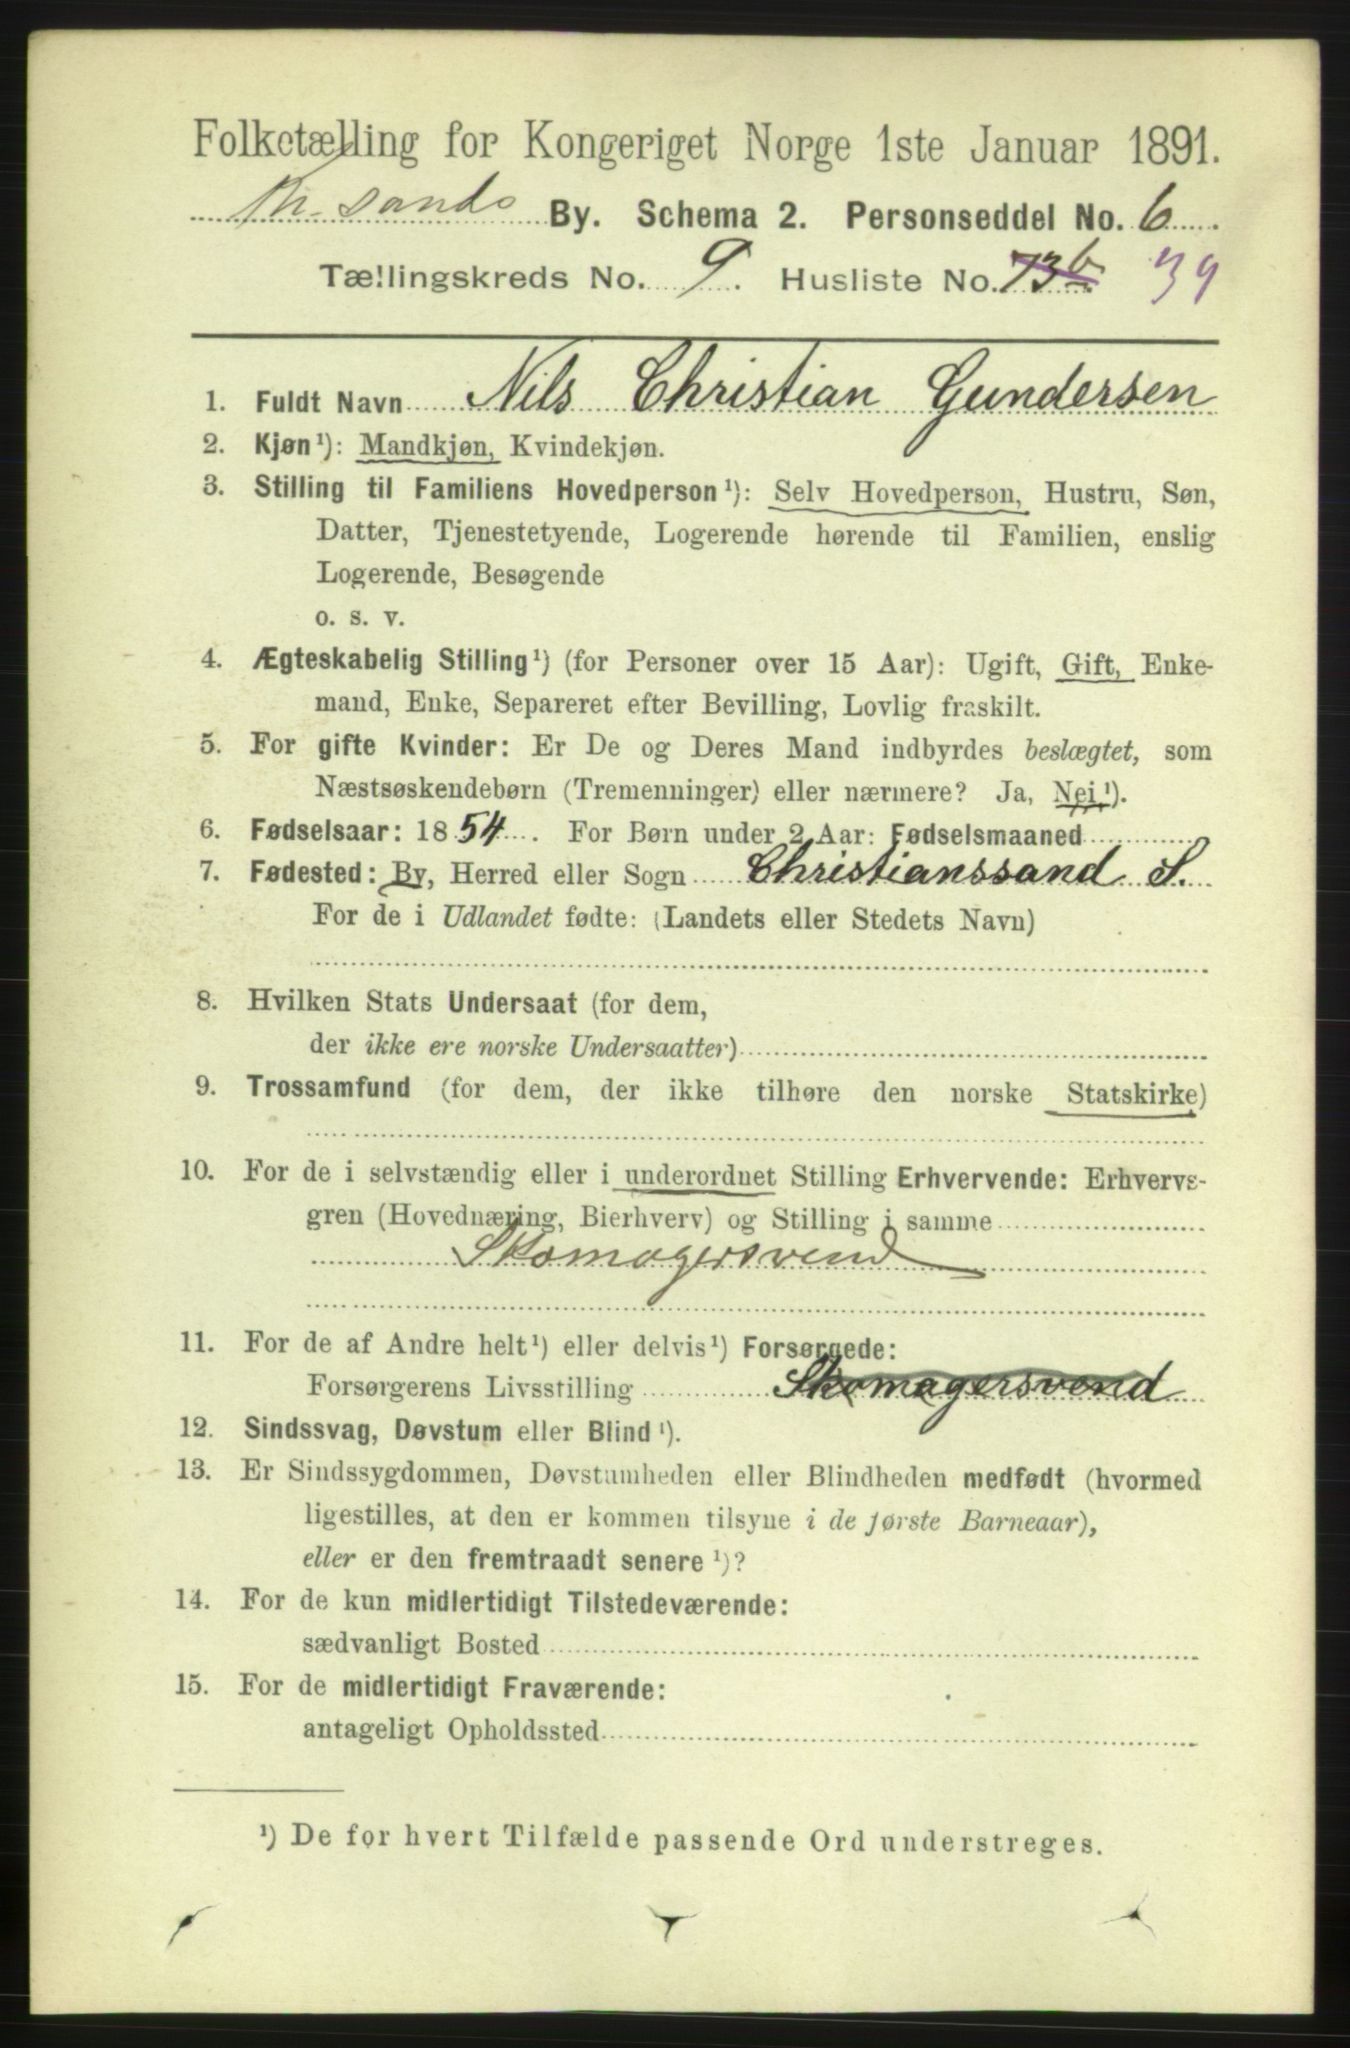 Folketælling for Kongeriget Norge 1ste Januar 1891.
Kr.sands By. Schema 2. Personseddel No. 6
Tællingskreds No. 9. Husliste No. 73b 39
1. Fuldt Navn Nils Christian Gundersen
2. Kjøn¹): Mandkjøn, Kvindekjøn.
3. Stilling til Familiens Hovedperson¹): Selv Hovedperson, Hustru, Søn,
Datter, Tjenestetyende, Logerende hørende til Familien, enslig
Logerende, Besøgende
o. s. v.
4. Ægteskabelig Stilling¹) (for Personer over 15 Aar): Ugift, Gift, Enke-
mand, Enke, Separeret efter Bevilling, Lovlig fraskilt.
5. For gifte Kvinder: Er De og Deres Mand indbyrdes beslægtet, som
Næstsøskendebørn (Tremenninger) eller nærmere? Ja, Nei¹).
6. Fødselsaar: 1854. For Børn under 2 Aar: Fødselsmaaned
7. Fødested: By, Herred eller Sogn Christianssand S.
For de i Udlandet fødte: (Landets eller Stedets Navn)
8. Hvilken Stats Undersaat (for dem,
der ikke ere norske Undersaatter)
9. Trossamfund (for dem, der ikke tilhøre den norske Statskirke)
10. For de i selvstændig eller i underordnet Stilling Erhvervende: Erhvervs-
gren (Hovednæring, Bierhverv) og Stilling i samme
Skomagersvend
11. For de af Andre helt¹) eller delvis¹) Forsørgede:
Forsørgerens Livsstilling Skomagersvend
12. Sindssvag, Døvstum eller Blind¹).
13. Er Sindssygdommen, Døvstumheden eller Blindheden medfødt (hvormed
ligestilles, at den er kommen tilsyne i de første Barneaar),
eller er den fremtraadt senere¹)?
14. For de kun midlertidigt Tilstedeværende:
sædvanligt Bosted
15. For de midlertidigt Fraværende:
antageligt Opholdssted
¹) De for hvert Tilfælde passende Ord understreges.